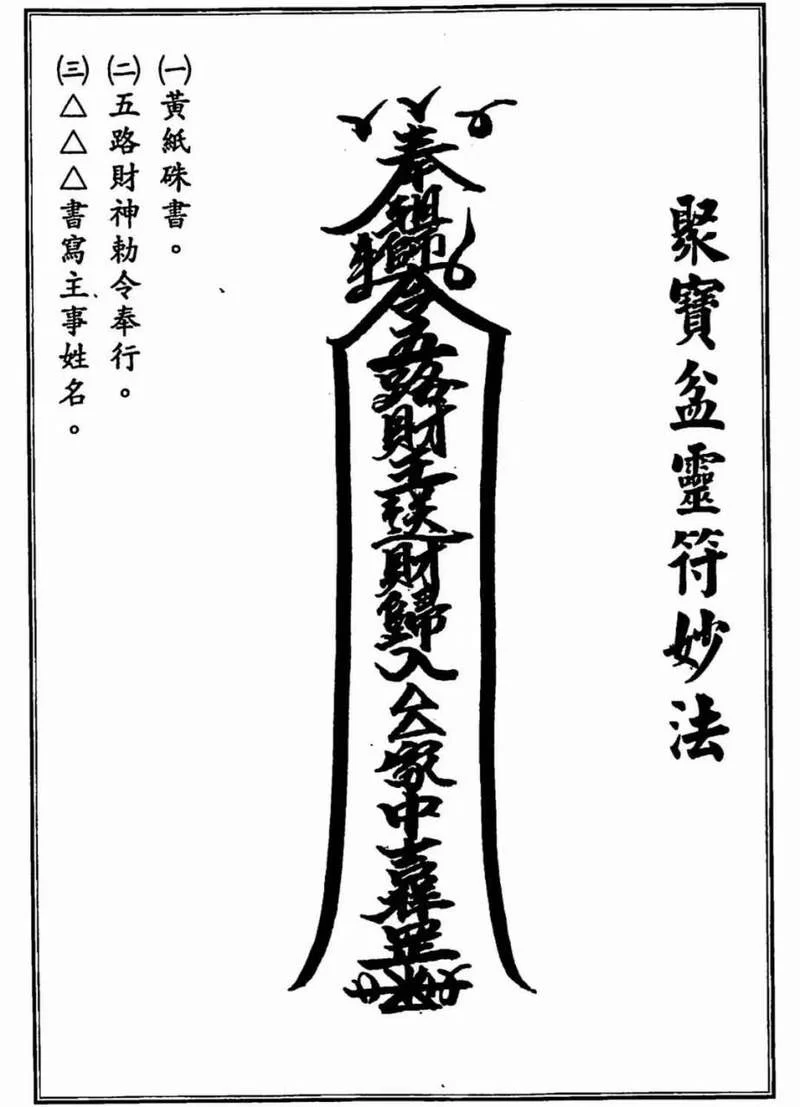 聚寶盆靈符妙法
奉祖師令五路財王送財歸入△△家中吉祥罡
㈠黃紙硃書。
㈡五路財神勅令奉行。
㈢△△△書寫主事姓名。